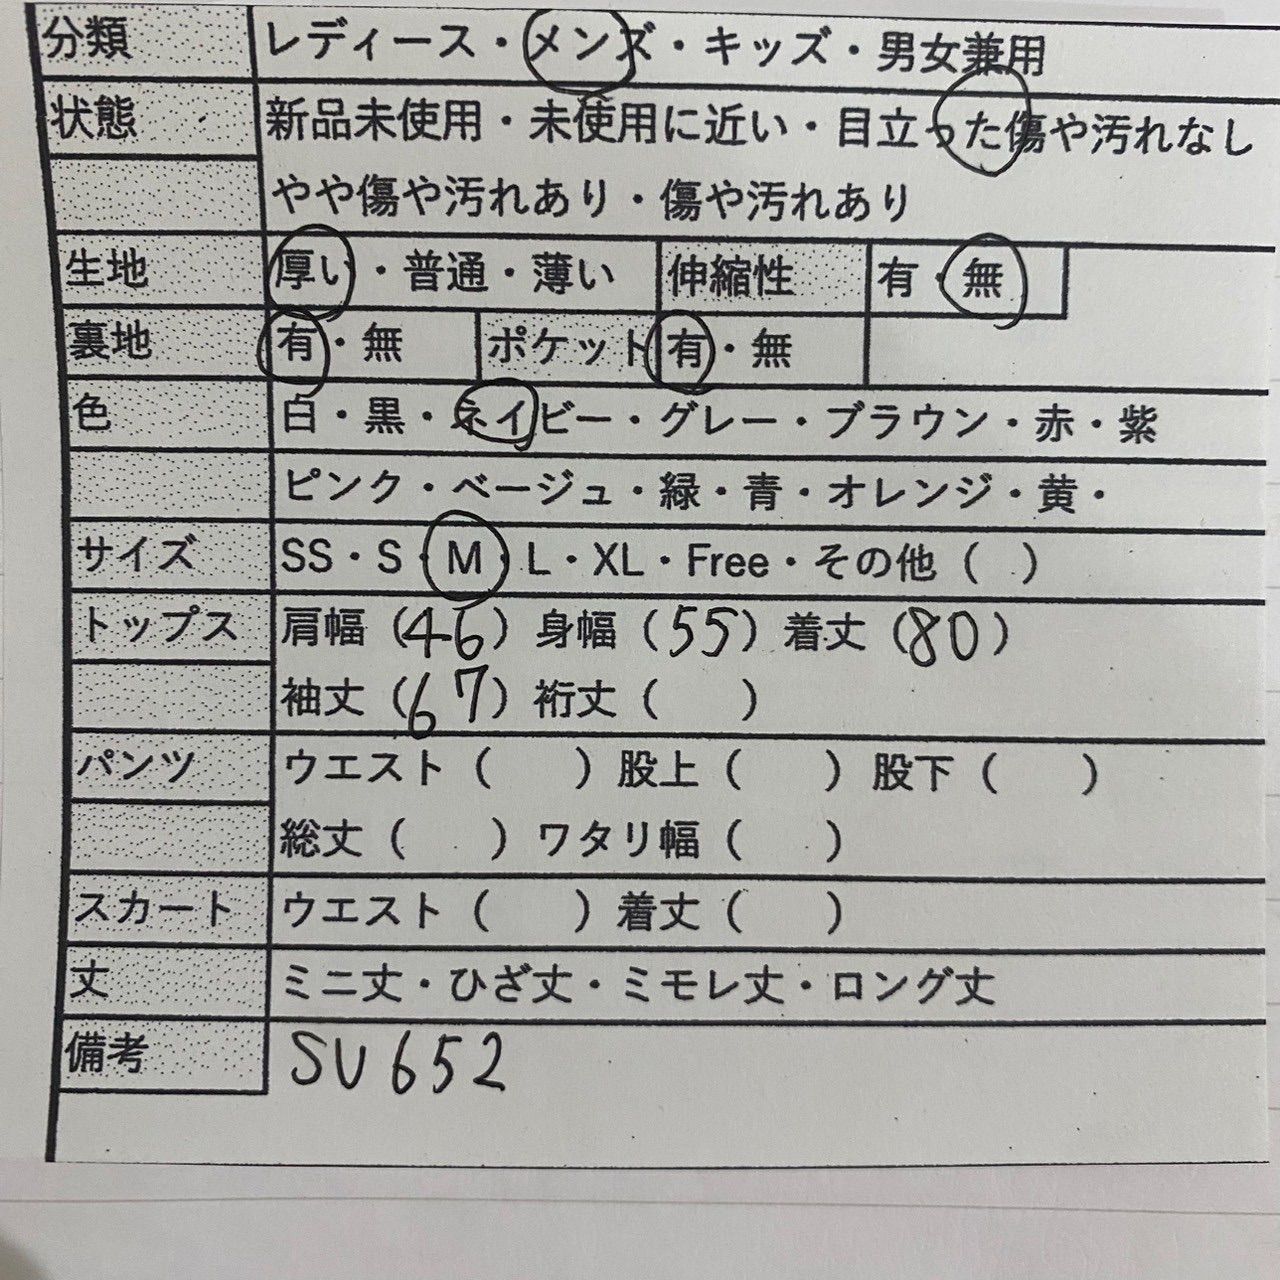 分類 レディース・メンズ・キッズ・男女兼用
状態 新品未使用・未使用に近い・目立った傷や汚れなし
やや傷や汚れあり・傷や汚れあり
生地 厚い・普通・薄い 伸縮性 有・無
裏地 有・無 ポケット 有・無
色 白・黒・ネイビー・グレー・ブラウン・赤・紫
ピンク・ベージュ・緑・青・オレンジ・黄・
サイズ SS・S・M・L・XL・Free・その他（ ）
トップス 肩幅（46）身幅（55）着丈（80）
袖丈（67）裄丈（ ）
パンツ ウエスト（ ）股上（ ）股下（ ）
総丈（ ）ワタリ幅（ ）
スカート ウエスト（ ）着丈（ ）
丈 ミニ丈・ひざ丈・ミモレ丈・ロング丈
備考 SU652